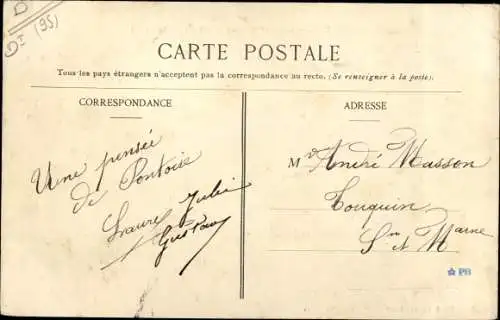 Dt (95)
CARTE POSTALE
Tous les pays étrangers n'acceptent pas la correspondance au recto. (Se renseigner à la poste).
CORRESPONDANCE
Une pensée
de Pontoise
Laure Julia
Gustave
ADRESSE
Mr André Masson
Touquin
Sne et Marne
PB